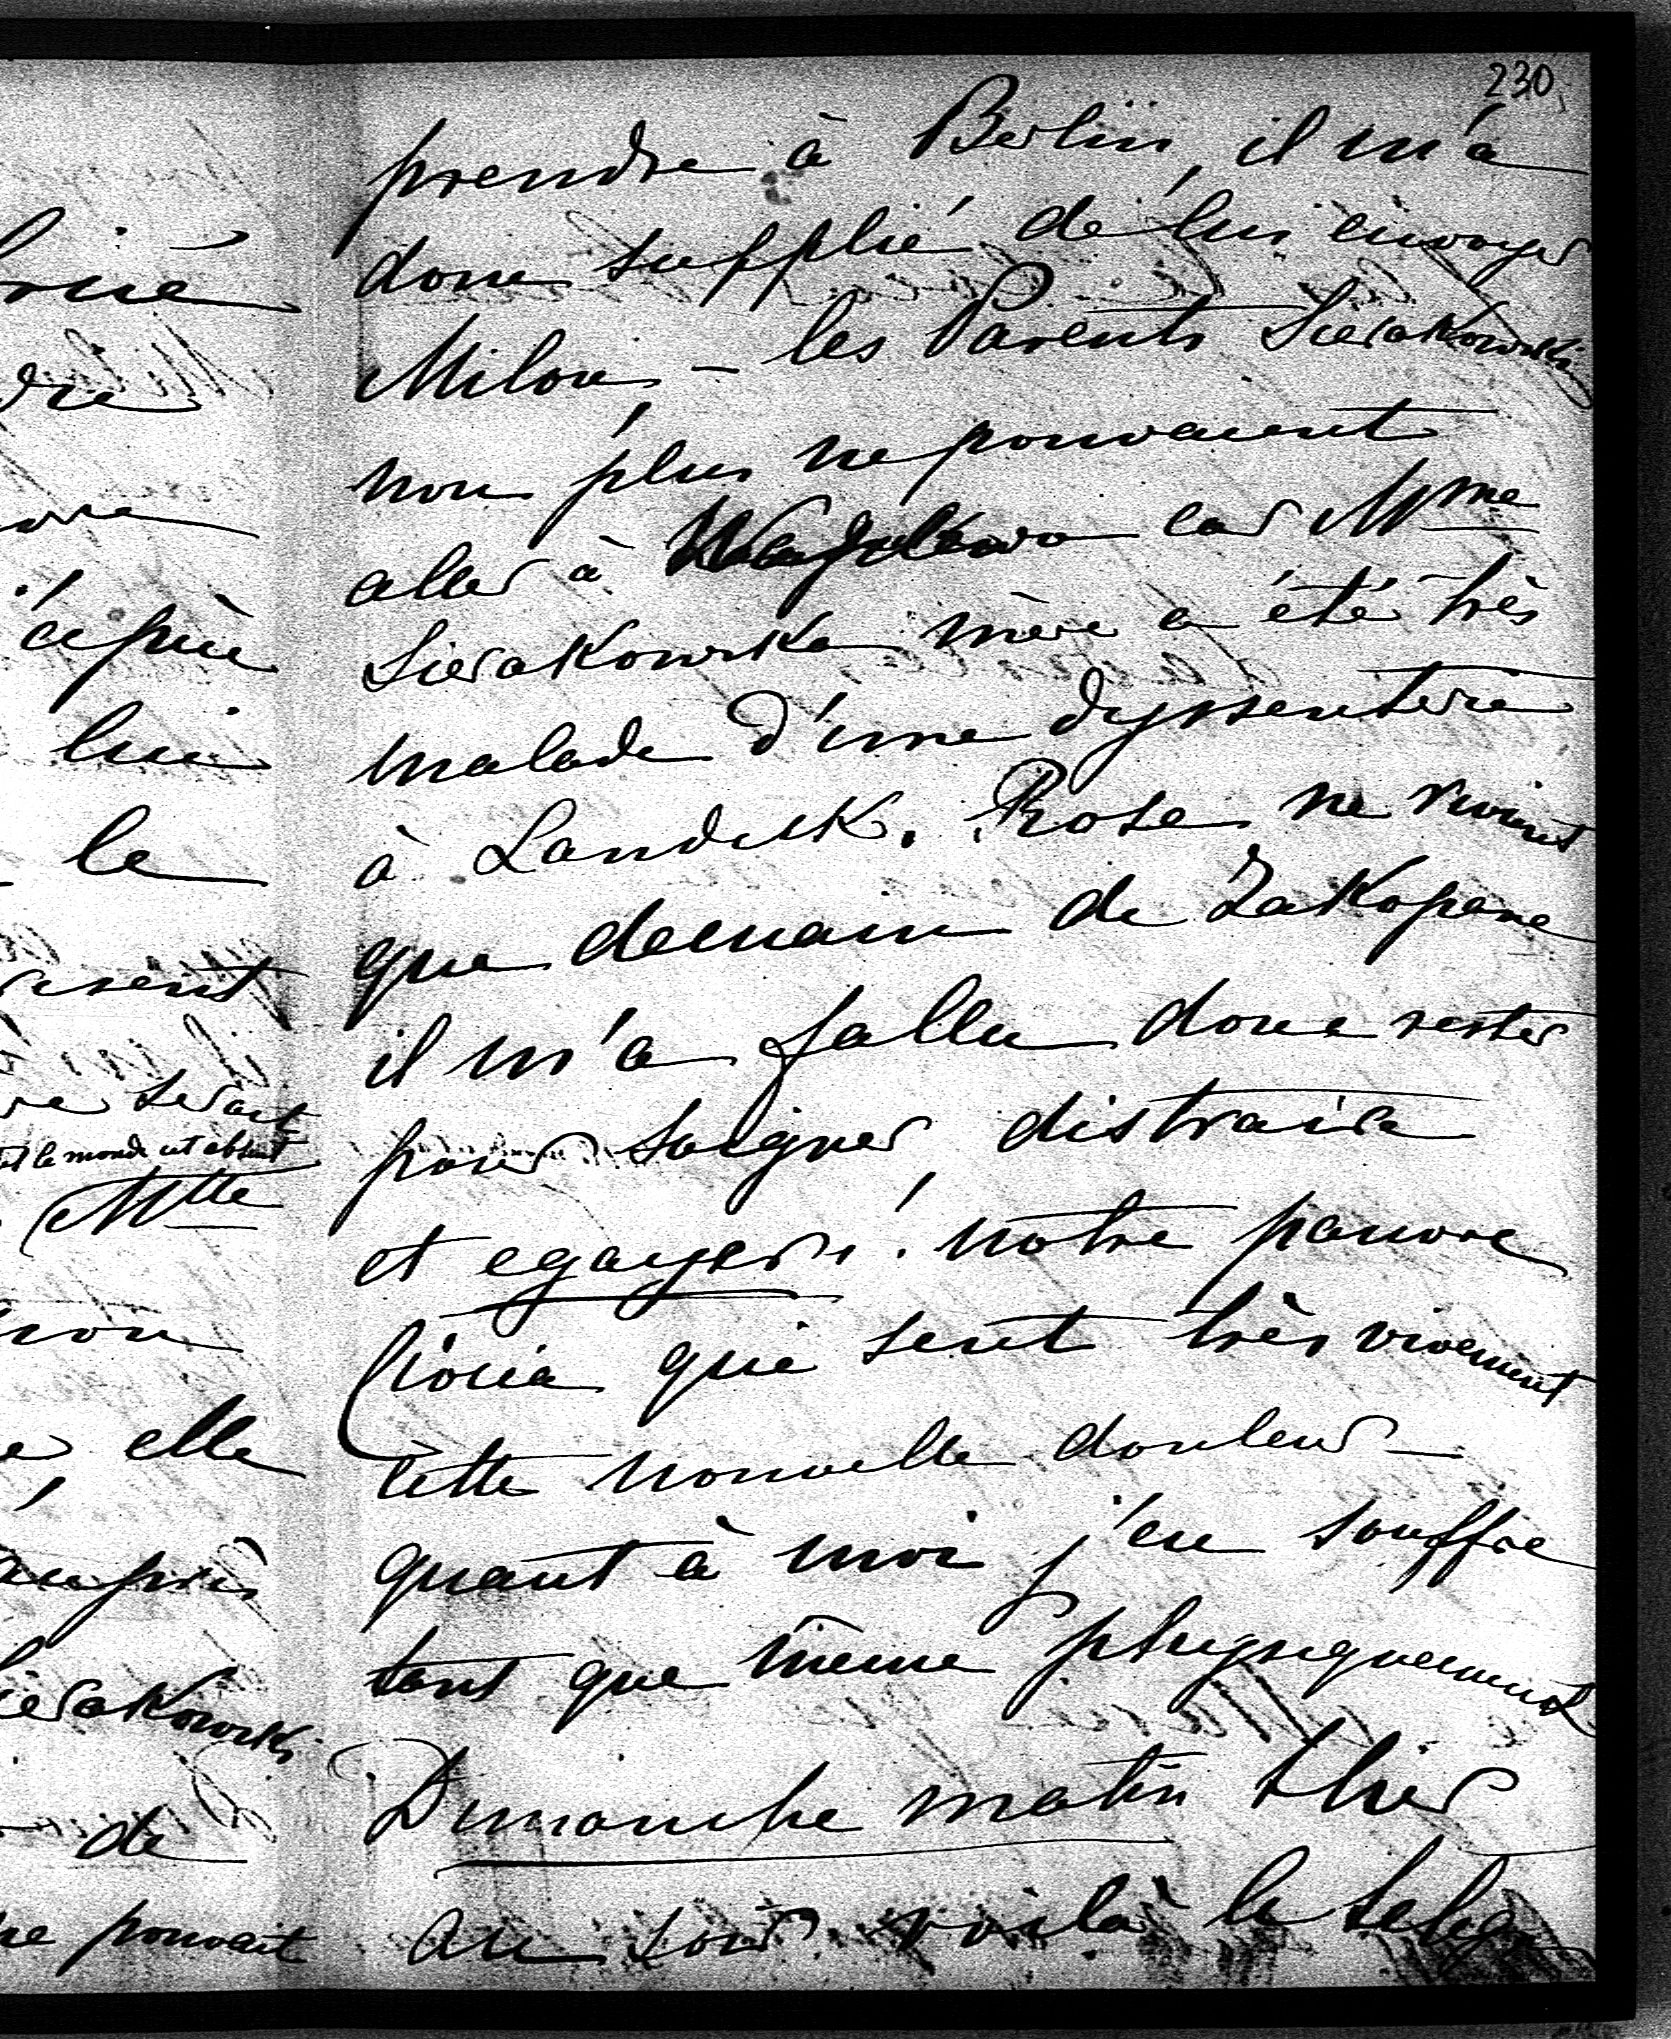 230
prendre à Berlin, il m'a
donc supplié de lui envoyer
Milon, – les Parents Sierakowski
non plus ne pouvaient
aller à car Mme
Sierakowska mère a été très
malade d'une dyssenterie
à Landeck. Rose ne revient
que demain de Zakopane
il m'a fallu donc rester
pour soigner, distraire
et egayer! notre pauvre
qui sent très vivement
cette nouvelle douleur –
quant à moi j'en souffre
tant que même physiquement
Dimanche matin Hier
au soir voilà le telegr
drie
lui
le
re serait
t le monde est absent
Mlle
elle
auprès
Sierakowski
de
ne pouvait